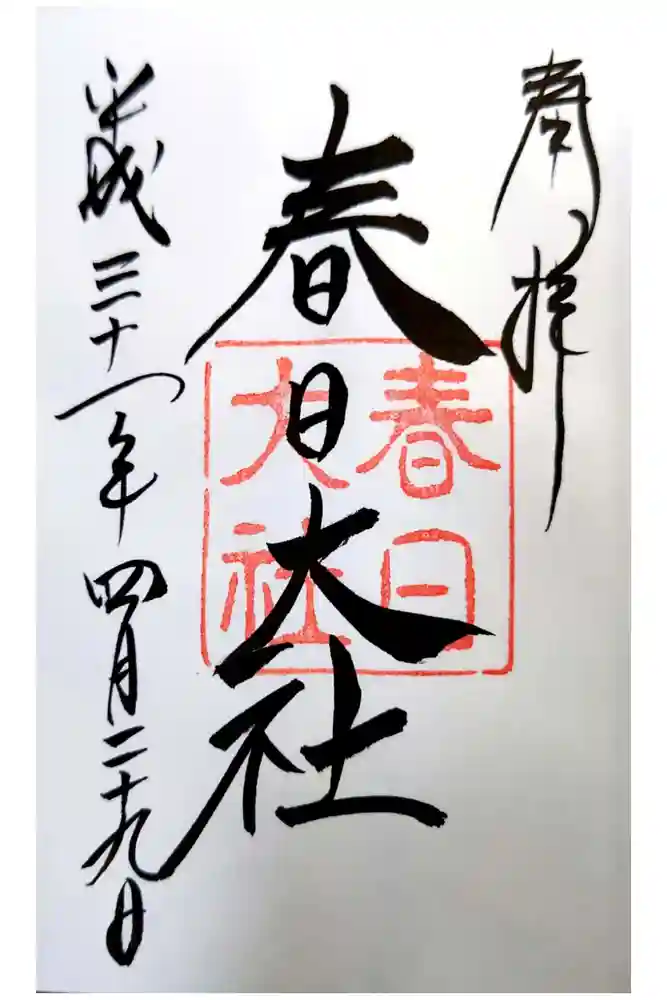 奉拝
春日大社
春日
大社
平成三十一年四月二十九日